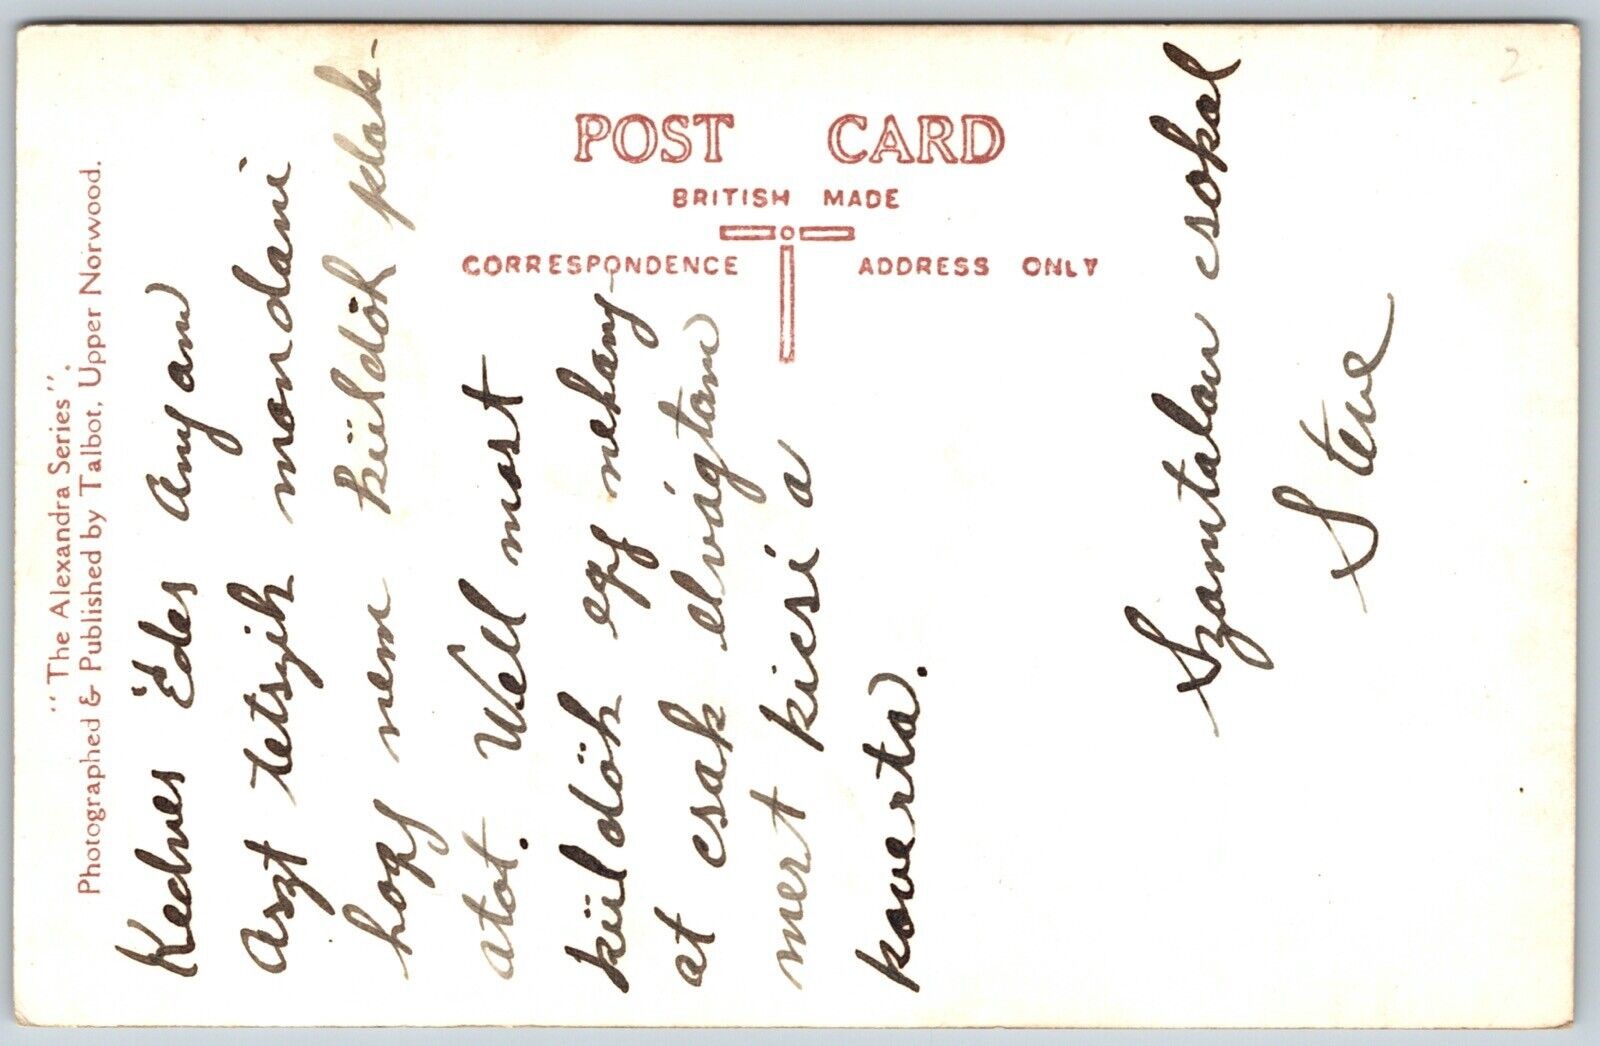 "The Alexandra Series".
Photographed & Published by Talbot, Upper Norwood.
POST CARD
BRITISH MADE
CORRESPONDENCE
ADDRESS ONLY
2
Kedves Édes Anyam
Aszt tetszik mondani
hogy nem küldök plak-
atot. Well most
küldök egy nehany-
at csak elvágtam
mert kicsi a
koverta.
Szamtalan csokal
Steve